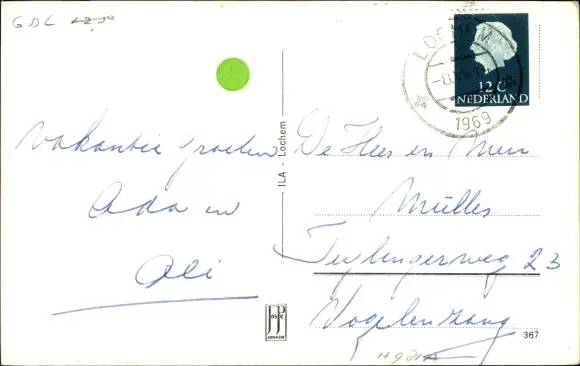 GDL 12,50
LOCHEM
1969
12 C
NEDERLAND
Vakantie groeten
Ada en
Ali
ILA - Lochem
De Heer en Mevr
Mülles
Teylingerweg 23
Vogelenzang
JosPé
ARNHEM
367